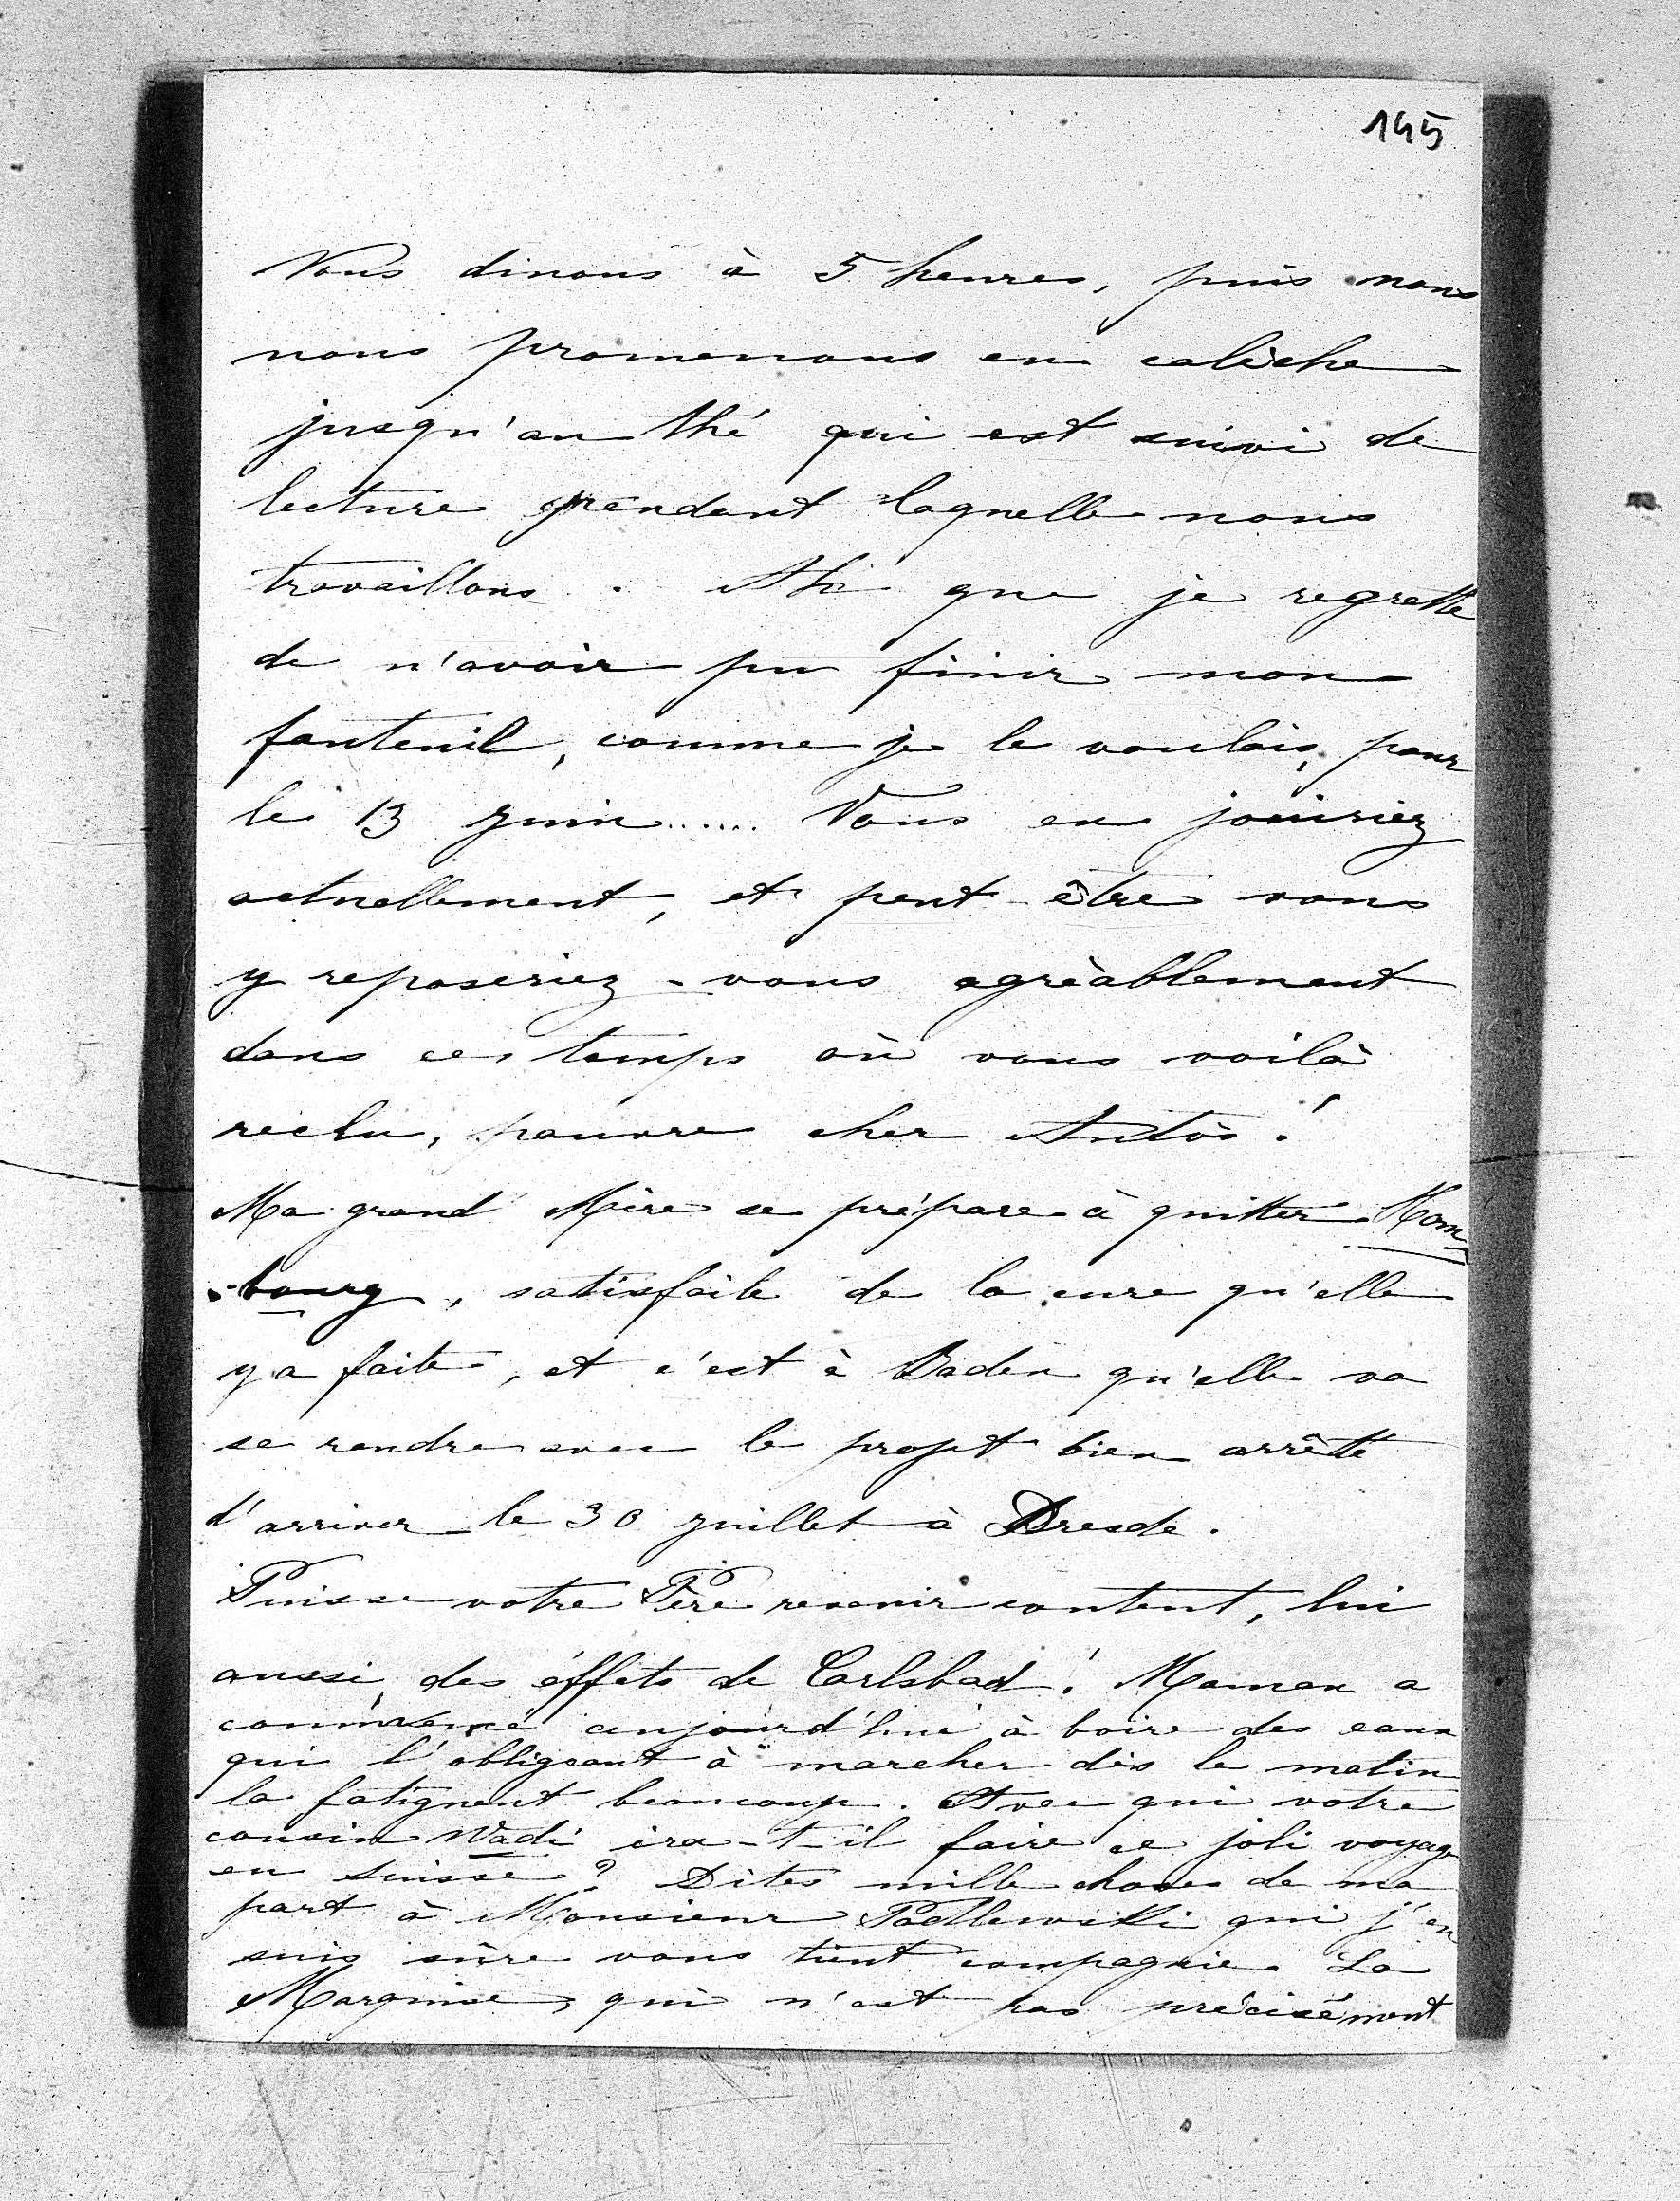 145
Nous dinons à 5 heures, puis nous
nous promenons en calèche
jusqu'au thé qui est suivi de
lecture pendant laquelle nous
travaillons. Ah que je regrette
de n'avoir pu finir mon
fauteuil, comme je le voulais, pour
le 13 Juin...... Vous en jouiriez
actuellement, et peut-être vous
y reposeriez-vous agrèablement
dans ces temps où vous voilà
reclu, pauvre cher Antos!
Ma grand Mère se prépare à quitter Hom
-bourg, satisfaite de la cure qu'elle
y a faite, et c'est à Baden qu'elle va
se rendre avec le projet bien arrêtté
d'arriver le 30 juillet à Dresde.
Puisse votre Père revenir content, lui
aussi, des éffets de Carlsbad! Maman a
commencé aujourd'hui à boire des eaux
qui l'obligeant à marcher dès le matin
la fatiguent beaucoup. Avec qui votre
cousin Wadi ira-t-il faire ce joli voyage
en Suisse? Dites mille choses de ma
part à Monsieur Padlewski qui j'en
suis sûre vous tient compagnie. La
Marquise, qui n'est pas précisément